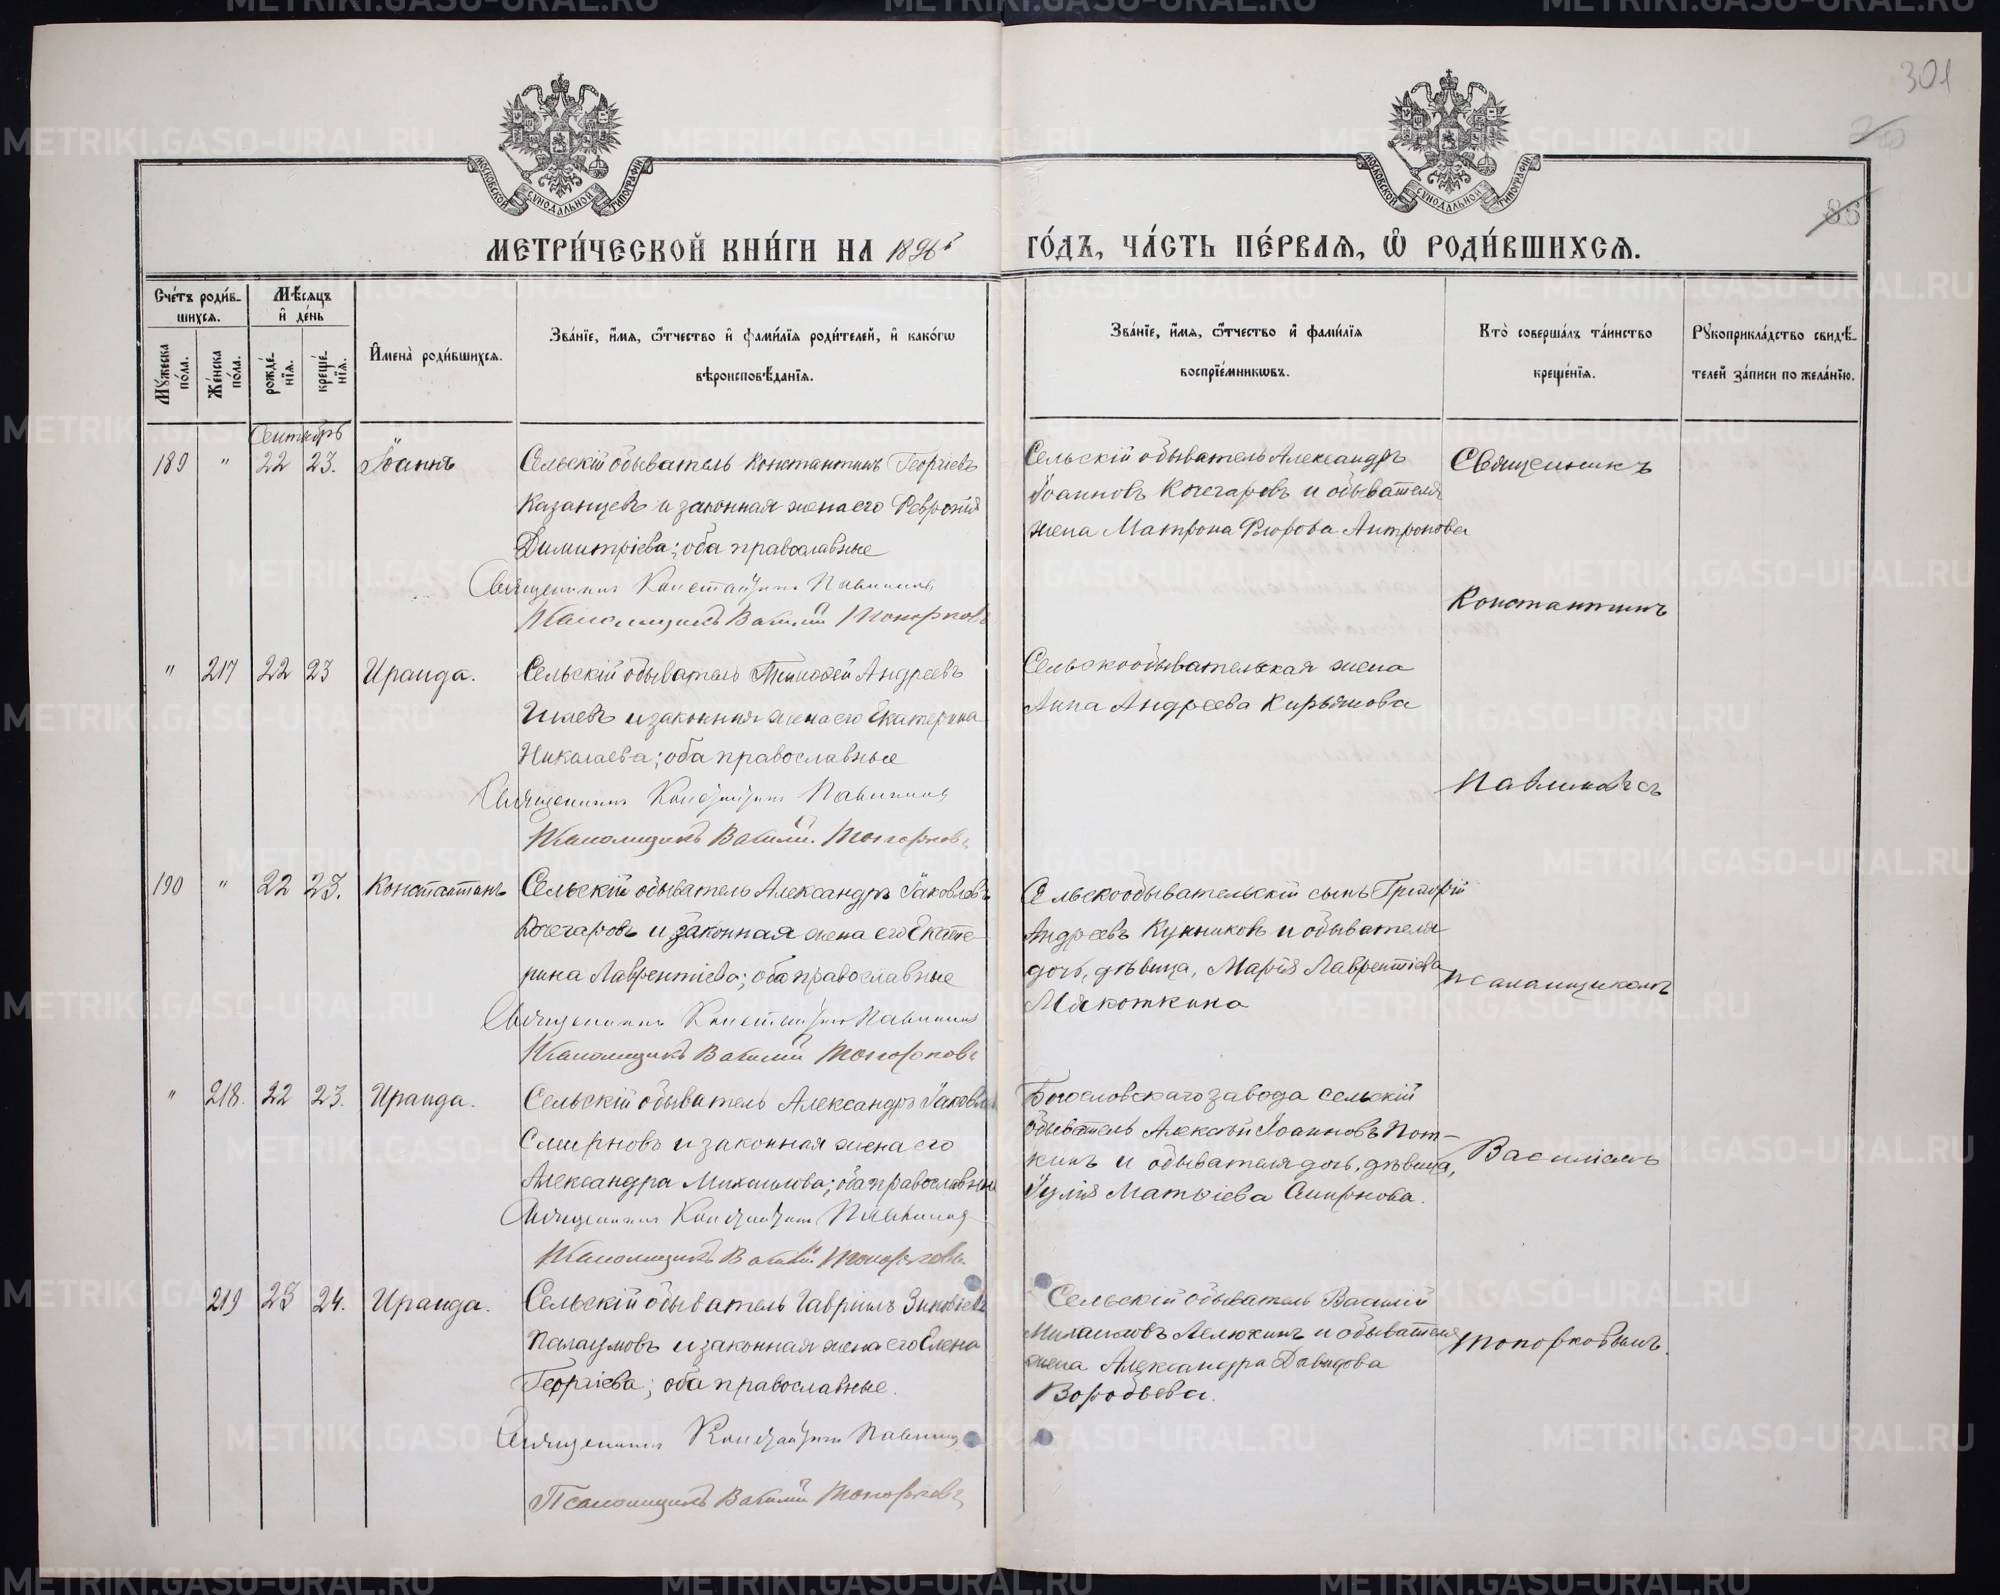 301
85
МОСКОВСКОЙ СѴНОДАЛЬНОЙ ТИПОГРАФІИ
МОСКОВСКОЙ СѴНОДАЛЬНОЙ ТИПОГРАФІИ
МЕТРИ́ЧЕСКОЙ КНИ́ГИ НА 1896й
ГО́ДЪ, ЧА́СТЬ ПЕ́РВАЯ, Ѡ РОДИ́ВШИХСЯ.
Сче́тъ роди́вшихся.
Мѣ́сяцъ и де́нь
Му́жеска по́ла.
Же́нска по́ла.
рожде́нїя.
креще́нїя.
Имена̀ роди́вшихся.
Зва́нїе, и́мя, ѻ́тчество и фами́лїя роди́телей, и како́гѡ
вѣроисповѣ́данїя.
Зва́нїе, и́мя, ѻ́тчество и фами́лїя
воспрїе́мникѡвъ.
Кто̀ соверша́лъ та́инство
креще́нїя.
Рꙋкоприкла́дство свидѣ́-
телей за́писи по жела́нїю.
Сентябрь
189 " 22 23. Іоаннъ
Сельскій обыватель Константинъ Георгіевъ
Казанцевъ и законная жена его Февронія
Димитріева; оба православные
Священникъ Константинъ Павлиновъ
Псаломщикъ Василій Топорковъ
Сельскій обыватель Александръ
Іоанновъ Кочегаровъ и обывателя
жена Матрона Флорова Антропова
" 217 22 23 Ираида.
Сельскій обыватель Тимофей Андреевъ
и законная жена его Екатерина
Николаева; оба православные
Священникъ Константинъ Павлиновъ
Псаломщикъ Василій Топорковъ
Сельскообывательская жена
Анна Андреева Кирьянова
190 " 22 23. Константинъ
Сельскій обыватель Александръ Іаковлевъ
Кочегаровъ и законная жена его Екате-
рина Лаврентіева; оба православные
Священникъ Константинъ Павлиновъ
Псаломщикъ Василій Топорковъ
Сельскообывательскій сынъ Григорій
Андреевъ Кунниковъ и обывателя
дочь, дѣвица, Марія Лаврентіева
Мякоткина
" 218. 22 23. Ираида.
Сельскій обыватель Александръ Іаковлев
Смирновъ и законная жена его
Александра Михаилова; оба православные
Священникъ Константинъ Павлиновъ
Псаломщикъ Василій Топорковъ
Богословскаго завода сельскій
обыватель Алексѣй Іоанновъ Пот-
кинъ и обывателя дочь, дѣвица,
Іулія Матѳіева Смирнова.
219 23 24. Ираида.
Сельскій обыватель Гавріилъ Зиновіевъ
Палаумовъ и законная жена его Елена
Георгіева; оба православные.
Священникъ Константинъ Павлиновъ
Псаломщикъ Василій Топорковъ
Сельскій обыватель Василій
Михаиловъ Лелюхинъ и обывателя
жена Александра Давидова
Воробьева.
Священникъ
Константинъ
Павлиновъ съ
псаломщикомъ
Василіемъ
Топорковымъ.
METRIKI.GASO-URAL.RU